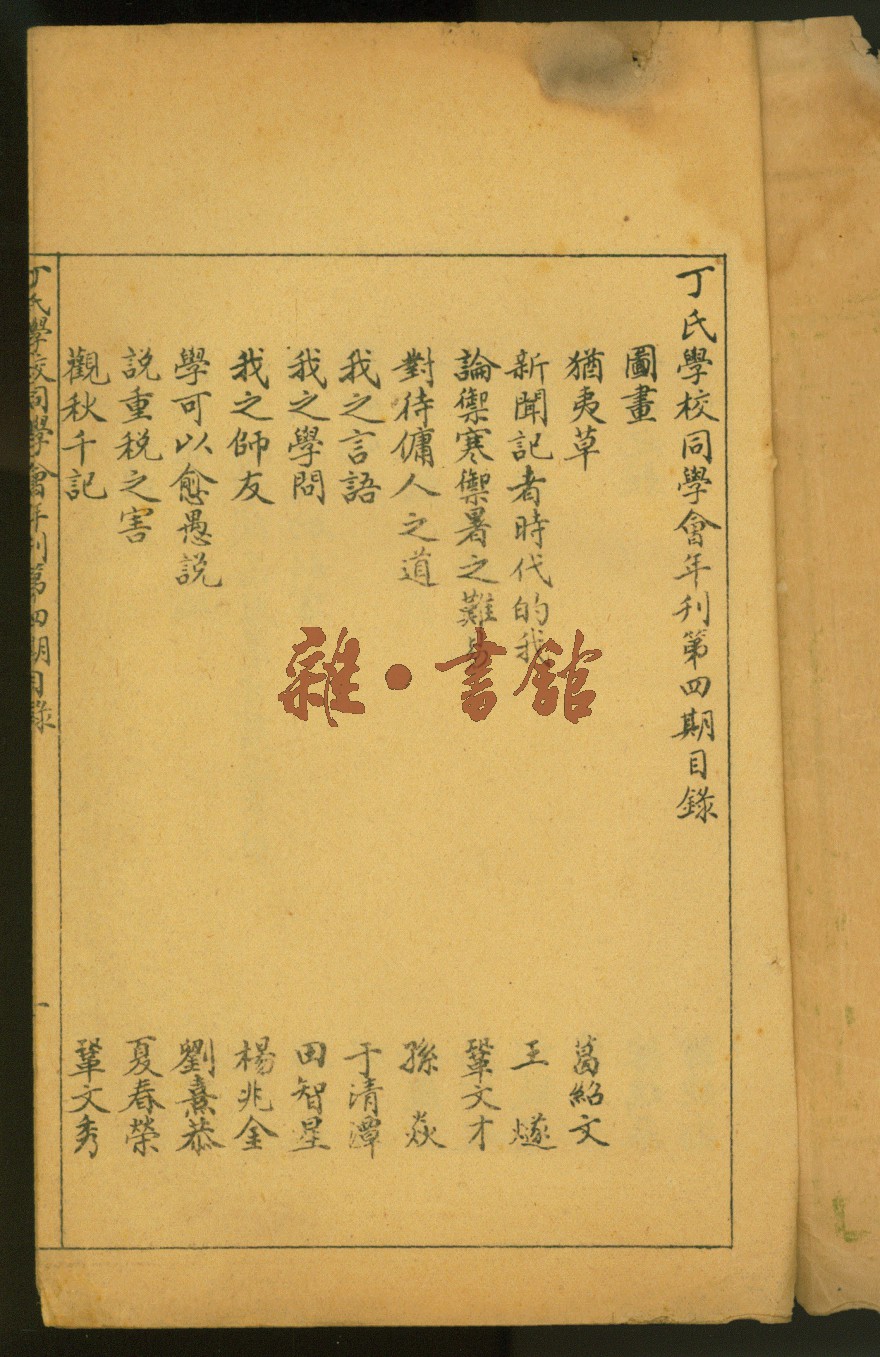 丁氏學校同學會年刊第四期目錄
圖畫
猶夷草 葛紹文
新聞記者時代的我 王燧
論禦寒禦暑之難易 鞏文才
對待傭人之道 孫焱
我之言語 于清潭
我之學問 田智星
我之師友 楊兆金
學可以愈愚說 劉熹恭
說重稅之害 夏春榮
觀秋千記 鞏文秀
丁氏學校同學會年刊第四期目錄
一
雜·書館